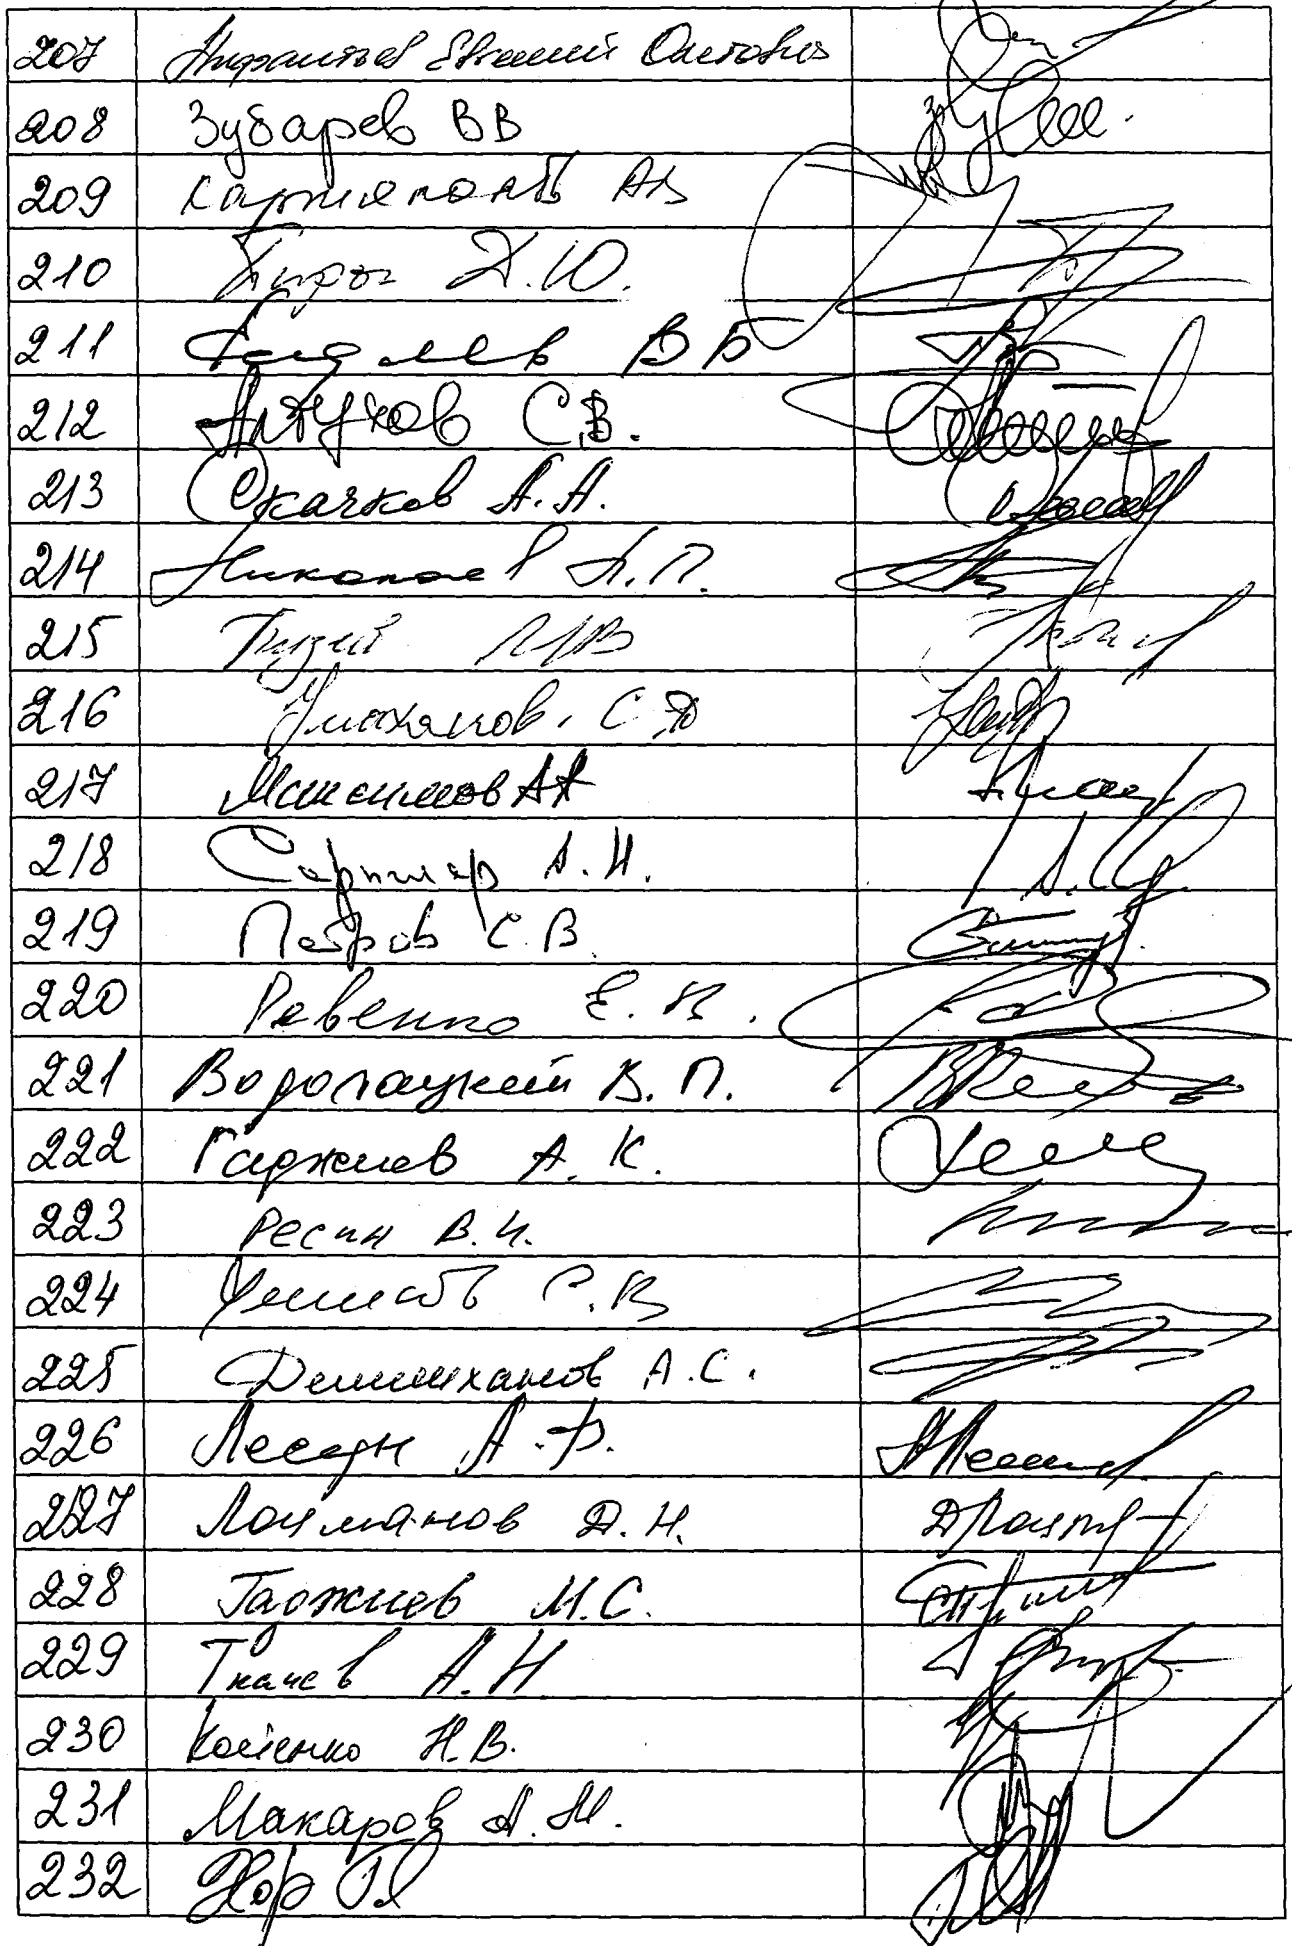 207 Нифантьев Евгений Олегович
208 Зубарев ВВ
209 Картаполов АВ
210 Пирог Д.Ю.
211 ВБ
212 Алтухов С.В.
213 Скачков А.А.
214 Николаев Н.П.
215
216 Умаханов С.Я
217 Максимов АА
218 Саришар А.И.
219 Петров С.В
220 Ревенко Е.В.
221 Водолацкий В.П.
222 Гаджиев А.К.
223 Ресин В.И.
224 С.В
225 Делимханов А.С.
226 Лесун А.Ф.
227 Лоцманов Д.Н.
228 Гаджиев М.С.
229 Ткачев А.Н
230 Коменко Н.В.
231 Макаров А.М.
232 Хор Г.Я